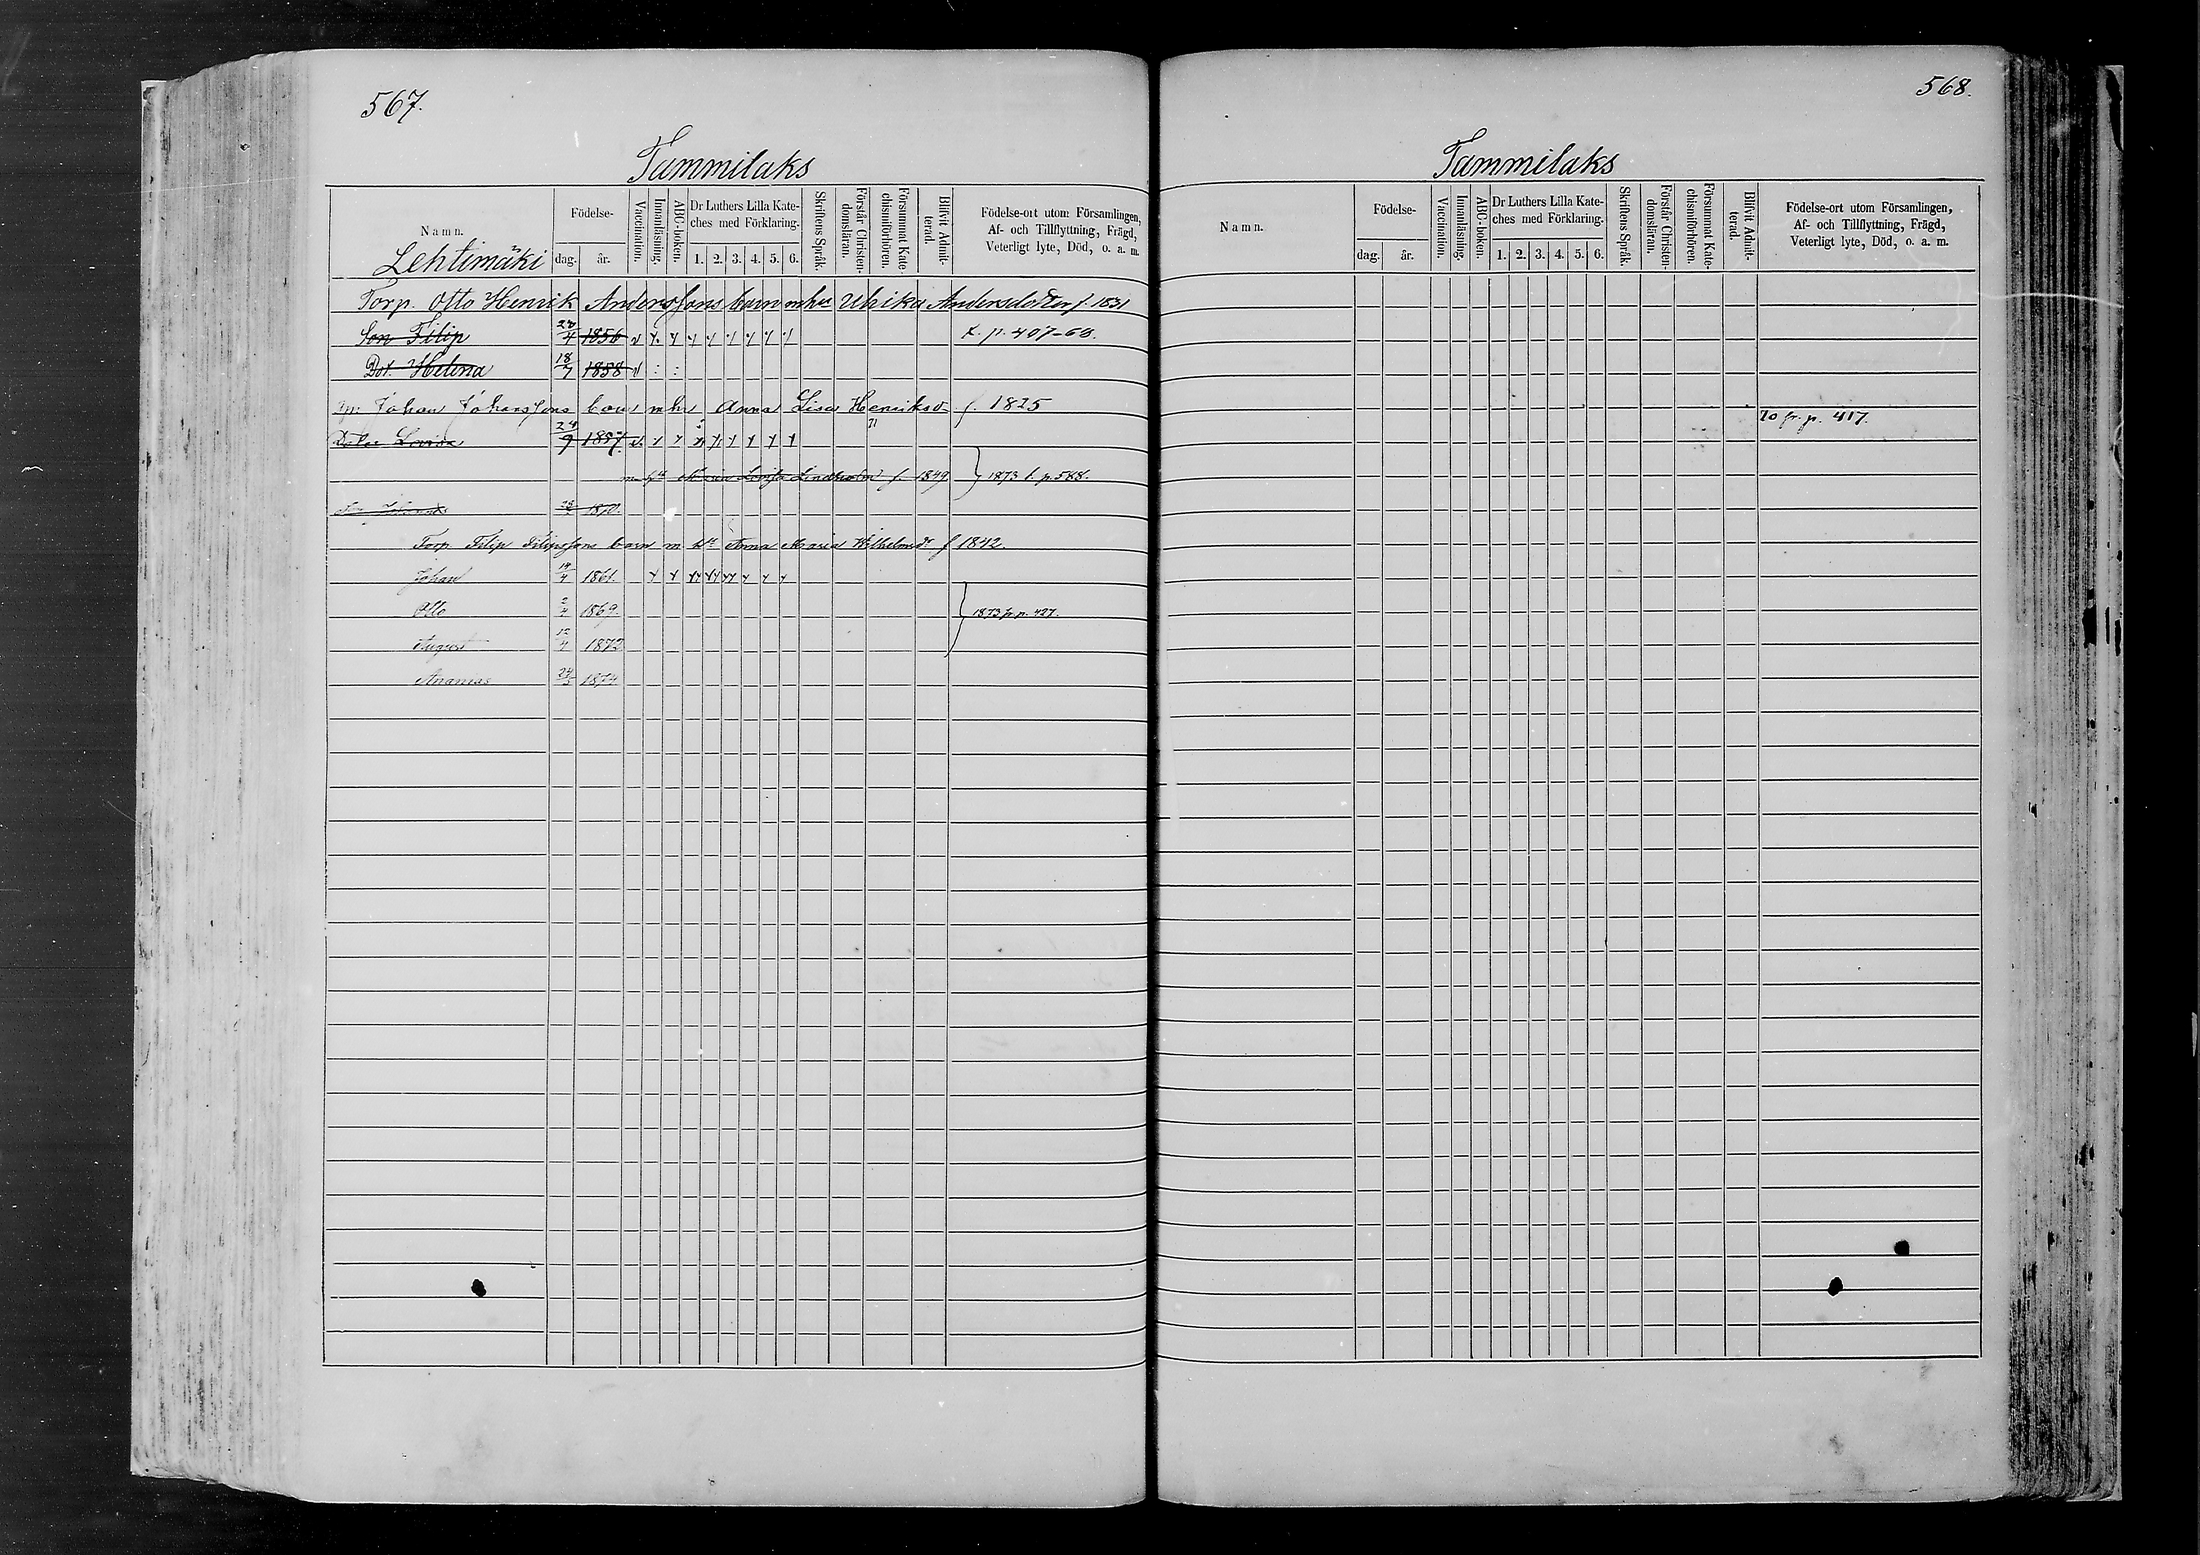 567.
Tammilaks
Namn.
Födelse-
dag.
år.
Vaccination.
Innanläsning.
ABC-boken.
Dr Luthers Lilla Kate-
ches med Förklaring.
1. 2. 3. 4. 5. 6.
Skriftens Språk.
Förstår Christen-
domsläran.
Försummat Kate-
chismiförhören.
Blifvit Admit-
terad.
Födelse-ort utom Församlingen,
Af- och Tillflyttning, Frägd,
Veterligt lyte, Död, o. a. m.
Lehtimäki
Torp. Otto Henrik Anderssons barn m hu Ulrika Andersdotter f. 1831
Son Filip 4 1856 p. 407-68.
Dot. Helena 18/7 1858
Johan Johanssons barn m hu Anna Lisa Henriksd f. 1825
71
Lovisa 24/9 1857
Maria Lovisa Lindholm f. 1849 } 1873 p. 588.
1870.
Torp. Filip Filipssons barn m hu Anna Maria Wilhelmsd f 1842.
Johan 14/4 1861.
Otto 2/4 1869. } 1873 fr. p. 427.
August 12/4 1872
Ananias 24/3 1874
568.
Tammilaks
Namn.
Födelse-
dag.
år.
Vaccination.
Innanläsning.
ABC-boken.
Dr Luthers Lilla Kate-
ches med Förklaring.
1. 2. 3. 4. 5. 6.
Skriftens Språk.
Förstår Christen-
domsläran.
Försummat Kate-
chismiförhören.
Blifvit Admit-
terad.
Födelse-ort utom Församlingen,
Af- och Tillflyttning, Frägd,
Veterligt lyte, Död, o. a. m.
70 fr. p. 417.